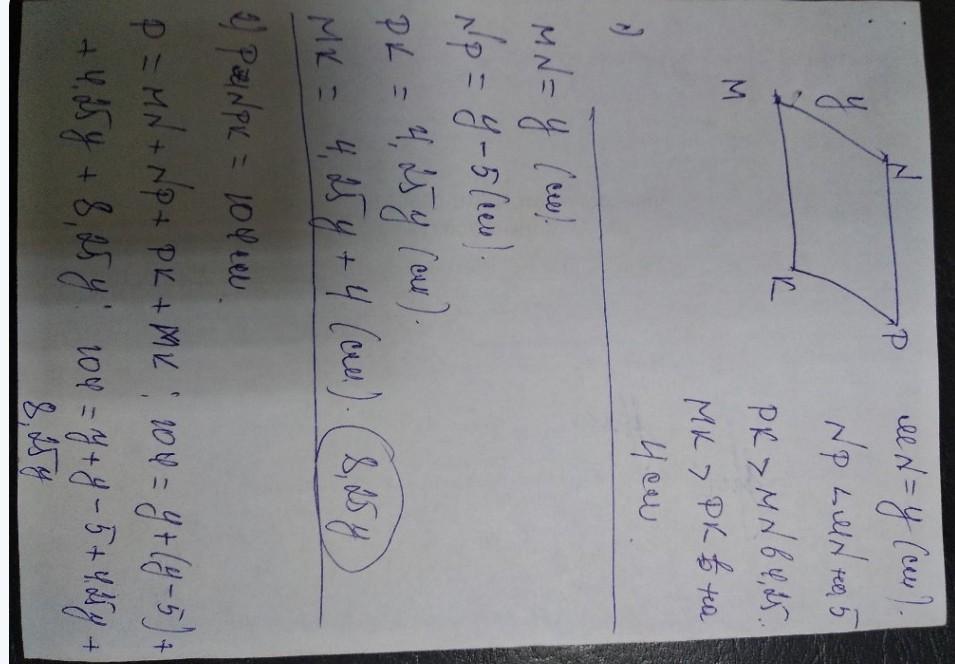 y
N
M
K
P
MN = y (см).
NP < MN на 5
PK > MN в 4,25.
MK > PK на
4 см
1)
MN = y (см).
NP = y - 5 (см).
PK = 4,25y (см).
MK = 4,25y + 4 (см). 8,25y
2) PMNPK = 104 см.
P = MN + NP + PK + MK; 104 = y + (y - 5) +
+ 4,25y + 8,25y; 104 = y + y - 5 + 4,25y +
8,25y